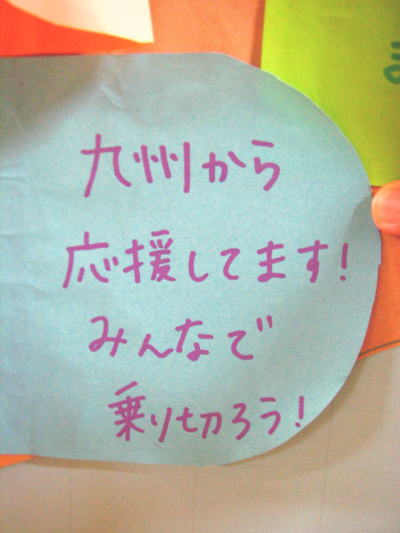 九州から
応援してます!
みんなで
乗り切ろう!